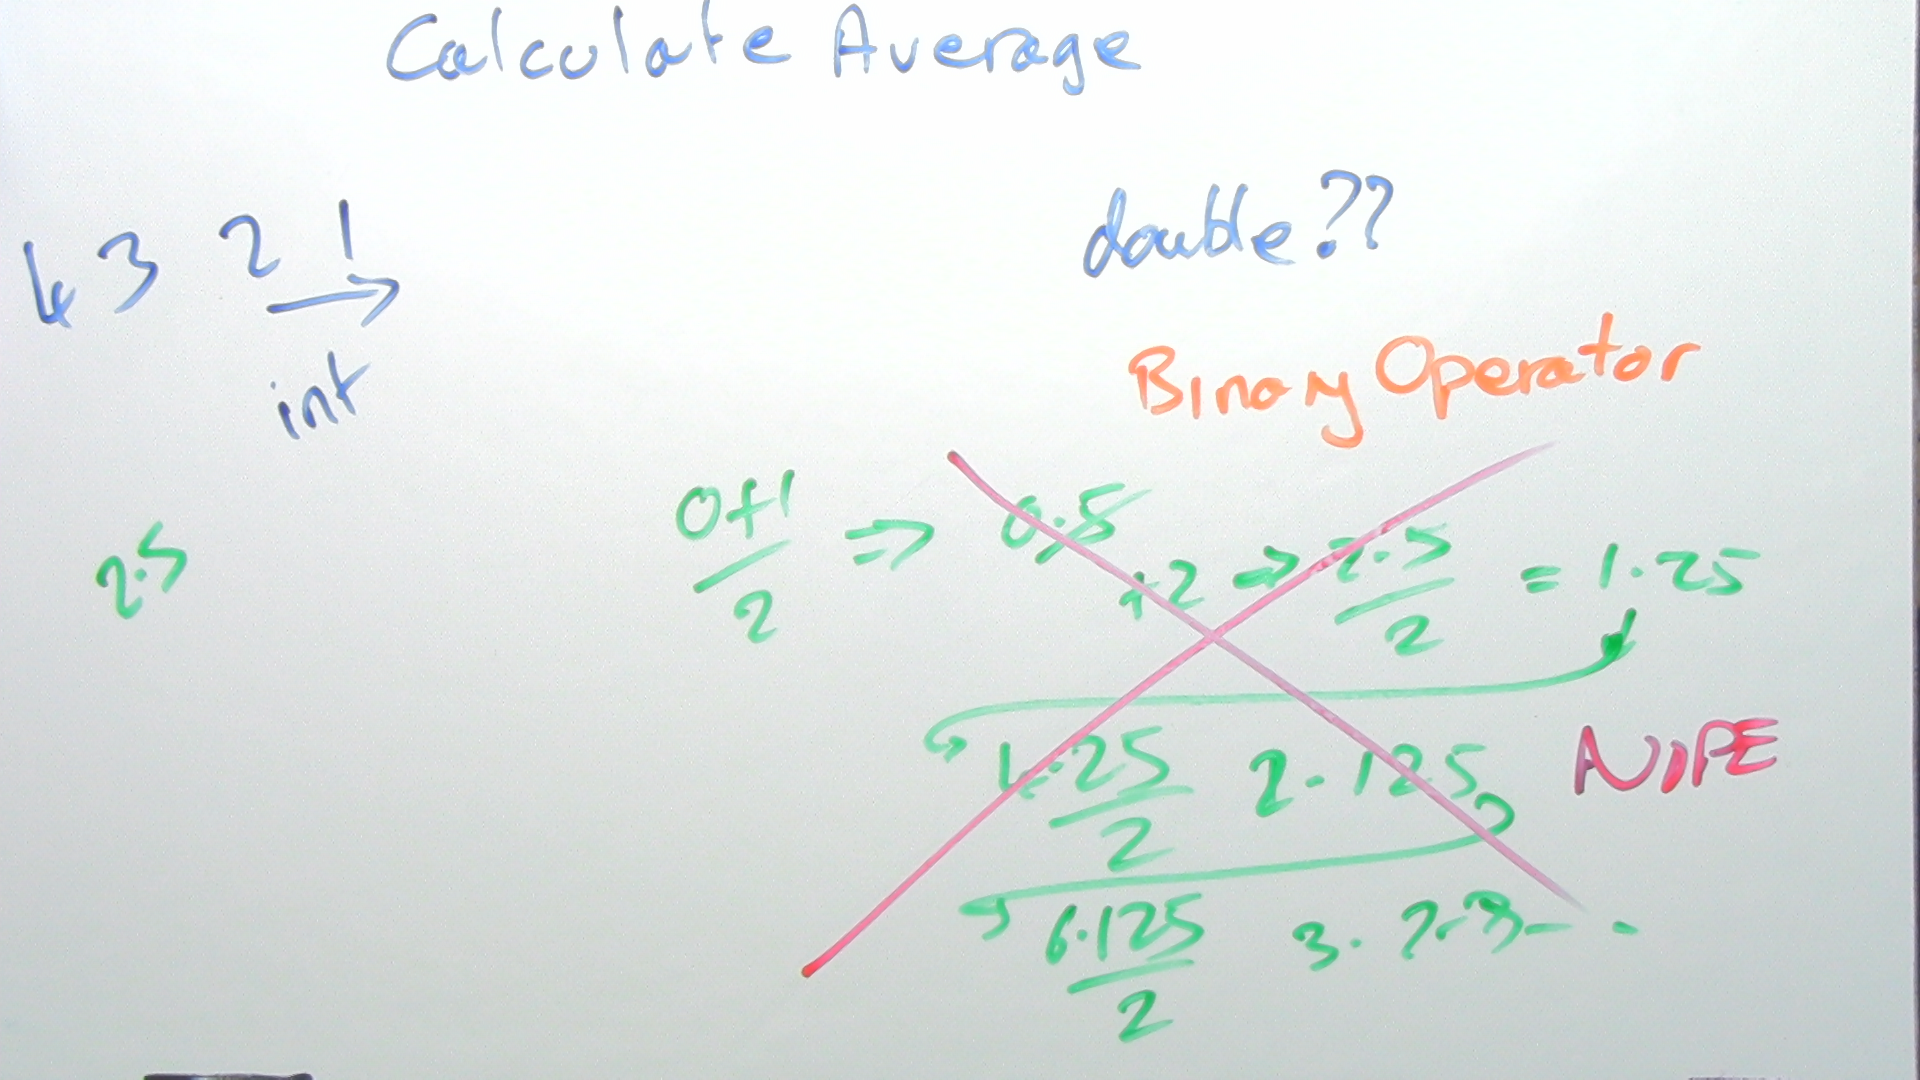 Calculate Average
4 3 2 1
int
double??
Binary Operator
2.5
0+1
2
⇒ 0.5
+2 ⇒ 2.5
2
= 1.25
4.25
2
2.125
NOPE
6.125
2